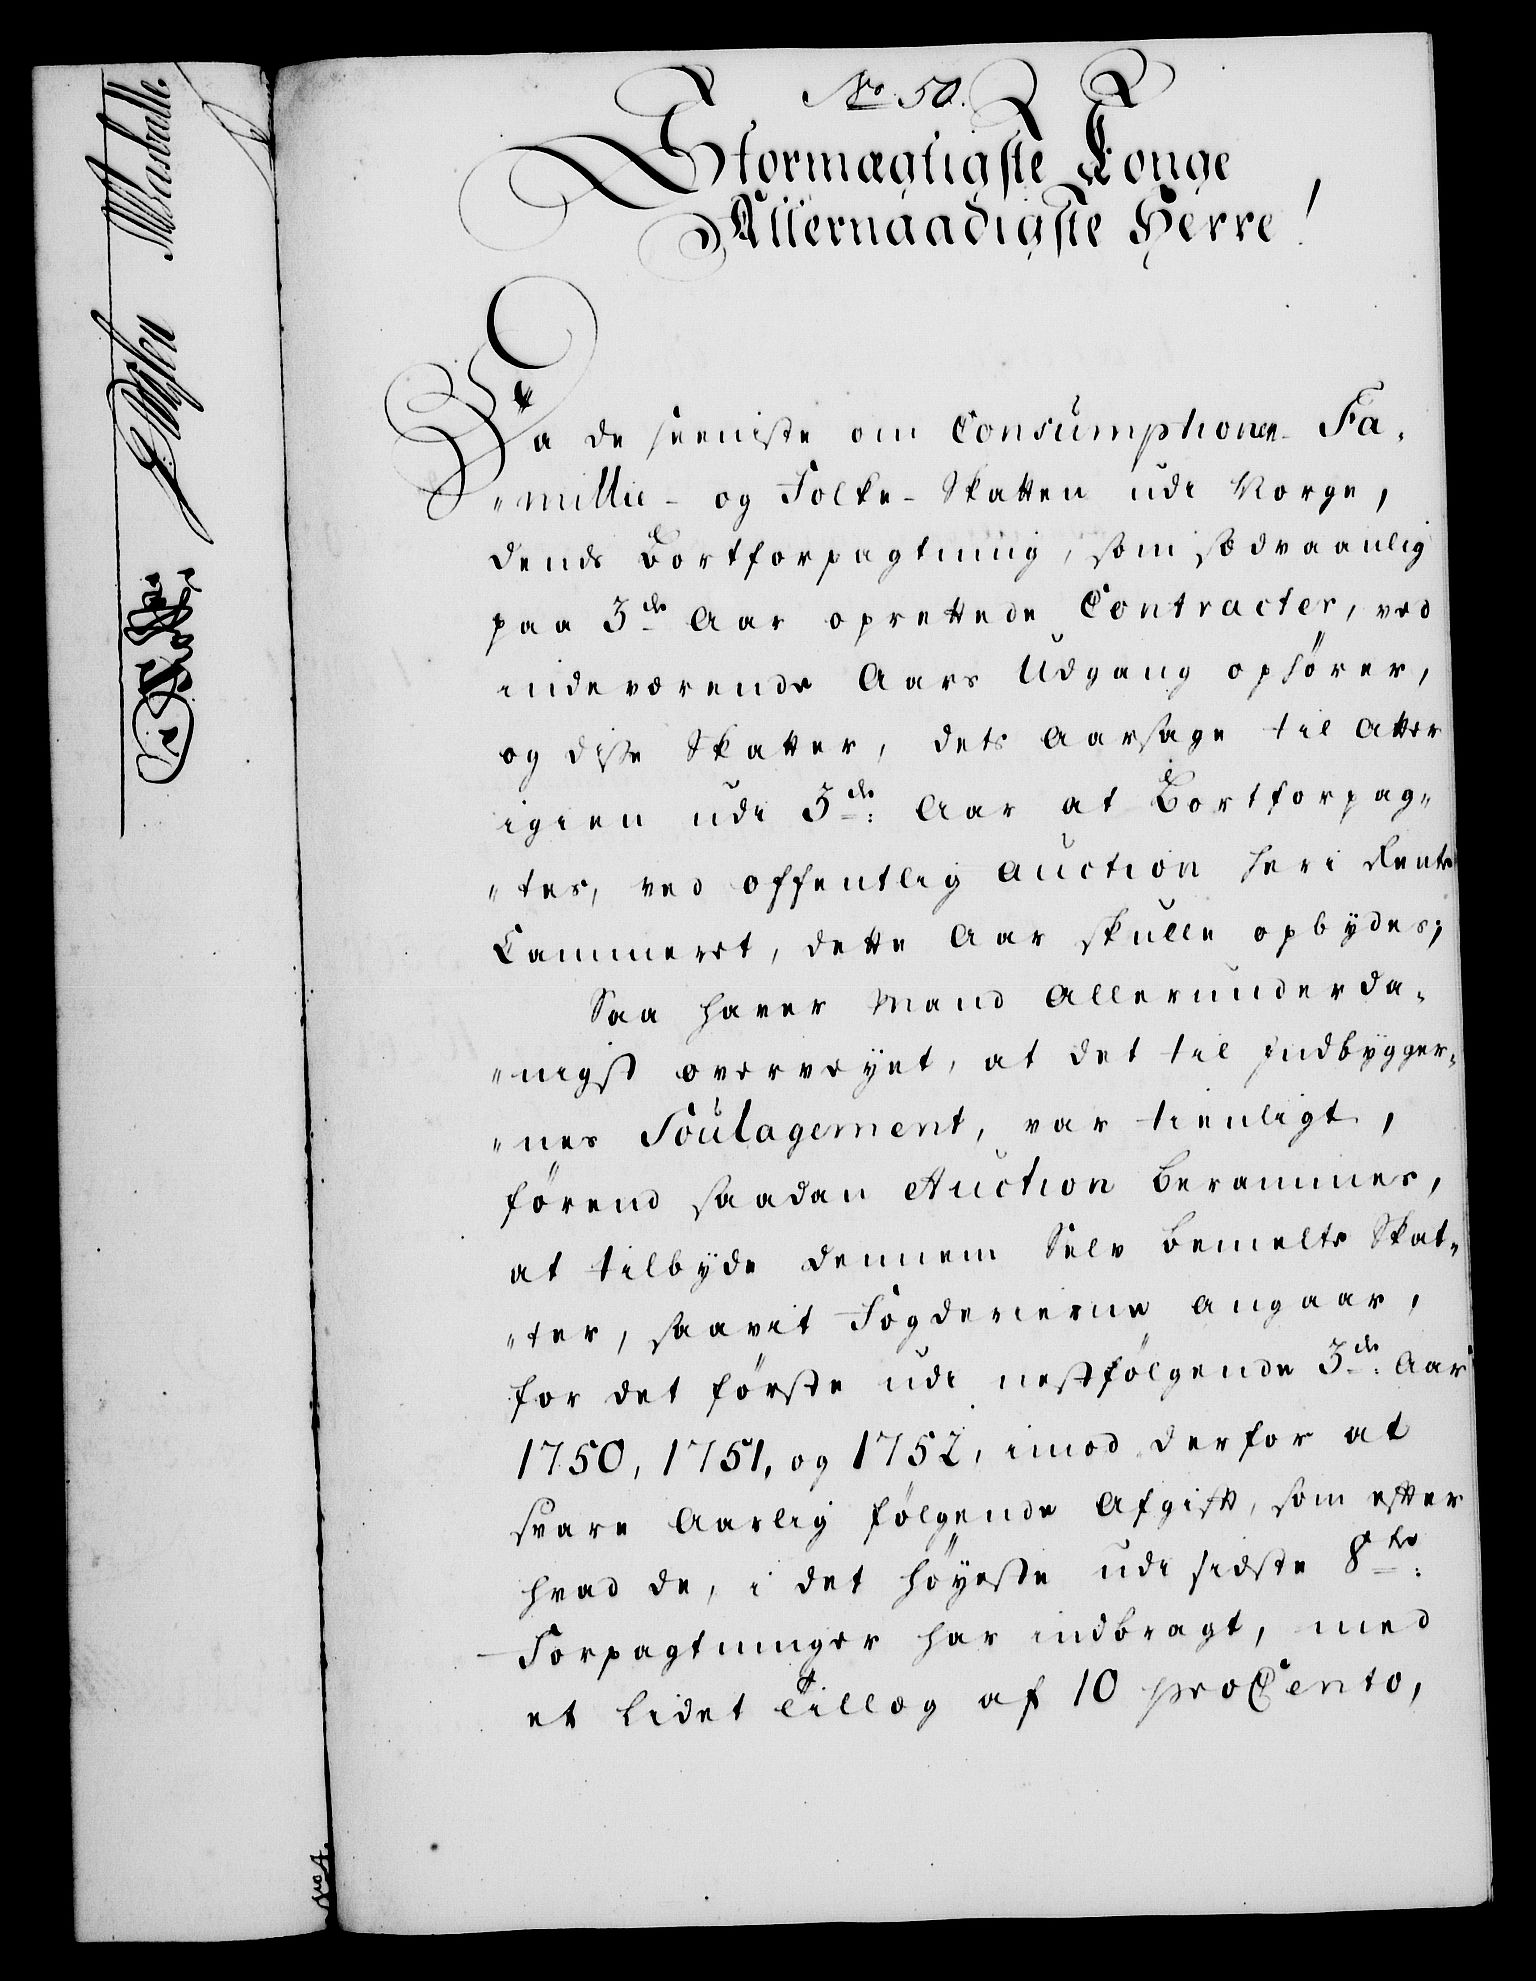 No. 50.
Stormægtigste Konge
Allernaadigste Herre!
Da de seeniste om Consumptionen Fa-
"millie- og Folke-Skatten udi Norge,
dends Bortforpagtning, som sædvaanlig
paa 3de Aar oprettede Contracter, ved
indeværende Aars Udgang ophører,
og disse Skatter, dets Aarsage til atter
igien udi 3de: Aar at Bortforpag-
"tes, ved offentlig Auction her i Rente
Cammeret, dette Aar skulle opbydes;
Saa haver Mand Allerunderda-
"nigst overveyet, at det til Indbygger-
"nes Soulagement, var tienligt,
førend saadan Auction berammes,
at tilbyde dennem Selv bemelte Skat-
"ter, saavit Fogderierne angaar,
for det første udi nestfølgende 3de: Aar
1750, 1751, og 1752, imod derfor at
svare Aarlig følgende Afgift, som efter
hvad de, i det høyeste udi sidste 8te:
Forpagtninger har indbragt, med
et lidet Tillæg af 10 pro Cento,